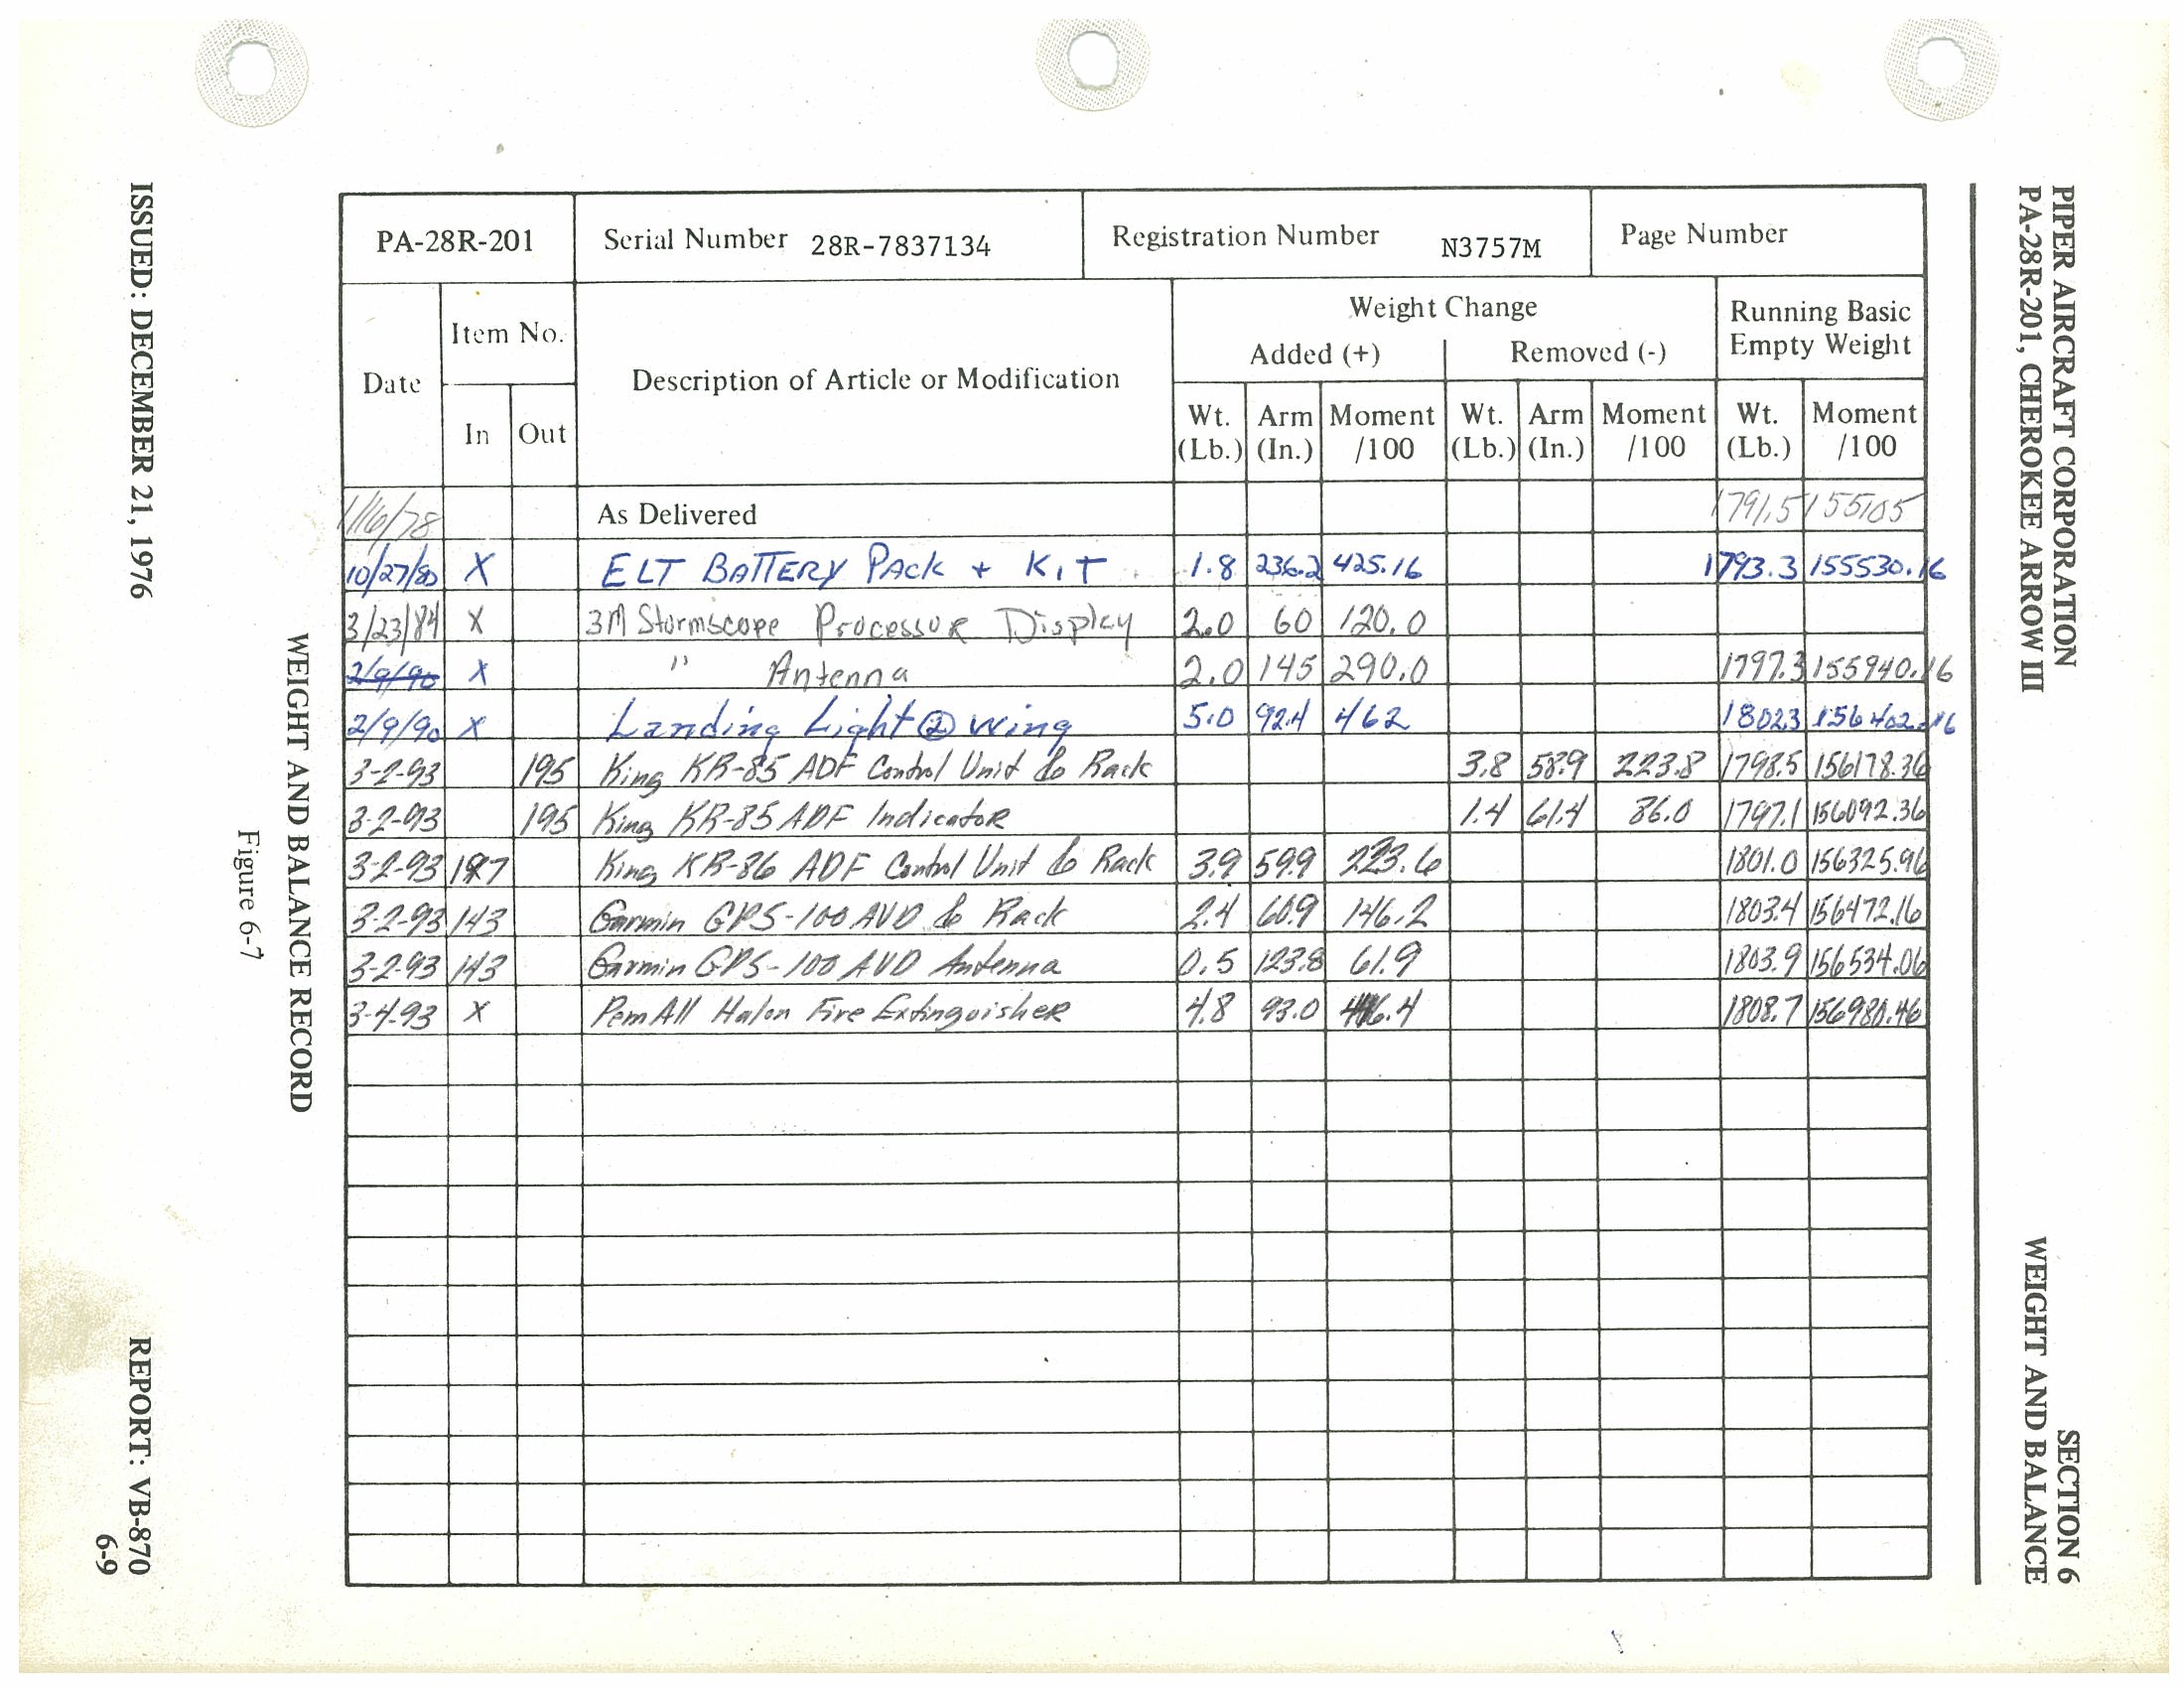 PIPER AIRCRAFT CORPORATION
PA-28R-201, CHEROKEE ARROW III
SECTION 6
WEIGHT AND BALANCE
PA-28R-201 Serial Number 28R-7837134 Registration Number N3757M Page Number
Date Item No. Description of Article or Modification Weight Change Running Basic Empty Weight
Added (+) Removed (-)
In Out Wt. (Lb.) Arm (In.) Moment /100 Wt. (Lb.) Arm (In.) Moment /100 Wt. (Lb.) Moment /100
1/16/78 As Delivered 1791.5 155105
10/27/80 X ELT BATTERY PACK + KIT 1.8 236.2 425.16 1793.3 155530.16
3/23/84 X 3M Stormscope Processor Display 2.0 60 120.0
2/9/90 X " Antenna 2.0 145 290.0 1797.3 155940.16
2/9/90 X Landing Light @ wing 5.0 92.4 462 1802.3 156402.16
3-2-93 195 King KR-85 ADF Control Unit & Rack 3.8 58.9 223.8 1798.5 156178.36
3-2-93 195 King KR-85 ADF Indicator 1.4 61.4 86.0 1797.1 156092.36
3-2-93 King KR-86 ADF Control Unit & Rack 3.9 59.9 1801.0 156325.96
3-2-93 143 Garmin GPS-100 AVD & Rack 2.4 60.9 146.2 1803.4 156472.16
3-2-93 143 Garmin GPS-100 AVD Antenna 0.5 123.8 61.9 1803.9 156534.06
3-4-93 X PemAll Halon Fire Extinguisher 4.8 93.0 446.4 1808.7 156980.46
WEIGHT AND BALANCE RECORD
Figure 6-7
ISSUED: DECEMBER 21, 1976
REPORT: VB-870
6-9